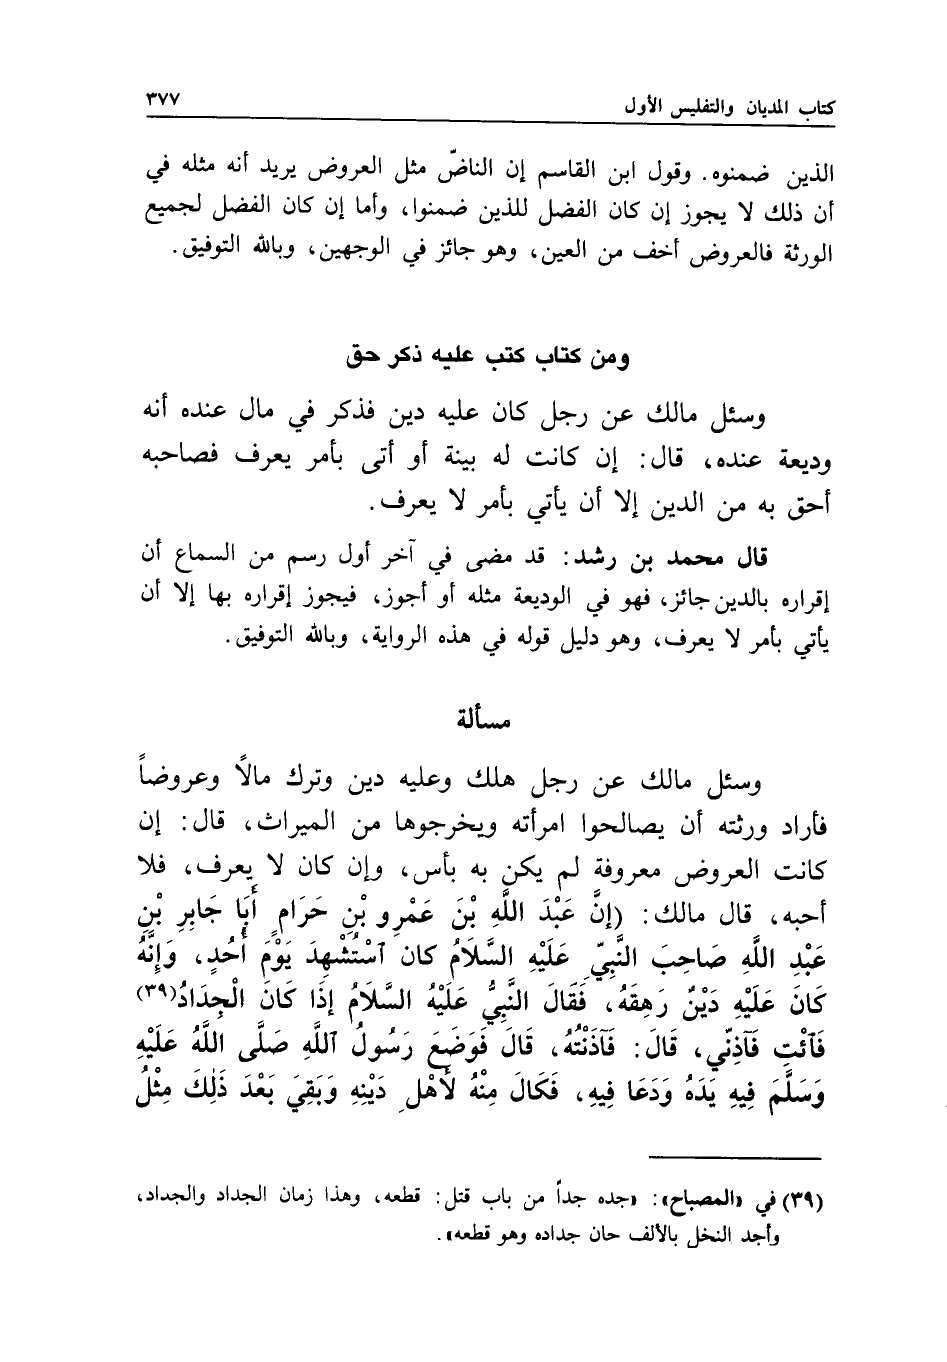 كتاب المديان والتفليس الأول
٣٧٧
الذين ضمنوه. وقول ابن القاسم إن الناضّ مثل العروض يريد أنه مثله في
أن ذلك لا يجوز إن كان الفضل للذين ضمنوا، وأما إن كان الفضل لجميع
الورثة فالعروض أخف من العين، وهو جائز في الوجهين، وبالله التوفيق.
ومن كتاب كتب عليه ذكر حق
وسئل مالك عن رجل كان عليه دين فذكر في مال عنده أنه
وديعة عنده، قال: إن كانت له بينة أو أتى بأمر يعرف فصاحبه
أحق به من الدين إلا أن يأتي بأمر لا يعرف.
قال محمد بن رشد: قد مضى في آخر أول رسم من السماع أن
إقراره بالدين جائز، فهو في الوديعة مثله أو أجوز، فيجوز إقراره بها إلا أن
يأتي بأمر لا يعرف، وهو دليل قوله في هذه الرواية، وبالله التوفيق.
مسألة
وسئل مالك عن رجل هلك وعليه دين وترك مالاً وعروضاً
فأراد ورثته أن يصالحوا امرأته ويخرجوها من الميراث، قال: إن
كانت العروض معروفة لم يكن به بأس، وإن كان لا يعرف، فلا
أحبه، قال مالك: (إنَّ عَبْدَ اللَّهِ بْنَ عَمْرِو بْنِ حَرَامٍ أَبَا جَابِرِ بْنِ
عَبْدِ اللَّهِ صَاحِبَ النَّبِيِّ عَلَيْهِ السَّلَامُ كان ٱسْتُشْهِدَ يَوْمَ أُحُدٍ، وَإِنَّهُ
كَانَ عَلَيْهِ دَيْنٌ رَهِقَهُ، فَقَالَ النَّبِيُّ عَلَيْهُ السَّلَامُ إذَا كَانَ الْجِدَادُ(٣٩)
فَآئْتِ فَآذِنِّي، قَالَ: فَآذَنْتُهُ، قَالَ فَوَضَعَ رَسُولُ ٱللَّهِ صَلَّى اللَّهُ عَلَيْهِ
وَسَلَّمَ فِيهِ يَدَهُ وَدَعَا فِيهِ، فَكَالَ مِنْهُ لأَهْلِ دَيْنِهِ وَبَقِيَ بَعْدَ ذَلِكَ مِثْلُ
(٣٩) في «المصباح»: «جده جداً من باب قتل: قطعه، وهذا زمان الجداد والجداد،
وأجد النخل بالألف حان جداده وهو قطعه».